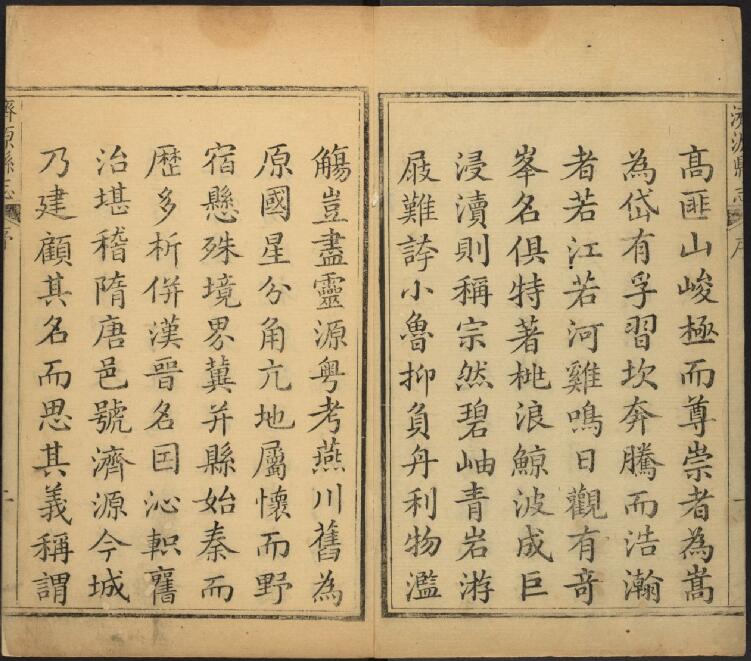 濟源縣志 序 一
高匪山峻極而尊崇者為嵩
為岱有孚習坎奔騰而浩瀚
者若江若河雞鳴日觀有奇
峯名俱特著桃浪鯨波成巨
浸瀆則稱宗然碧岫青岩游
屐難誇小魯抑負舟利物濫
觴豈盡靈源粤考燕川舊為
原國星分角亢地屬懷而野
宿懸殊境界冀并縣始秦而
歷多析併漢晉名因沁軹舊
治堪稽隋唐邑號濟源今城
乃建顧其名而思其義稱謂
濟源縣志 序 二